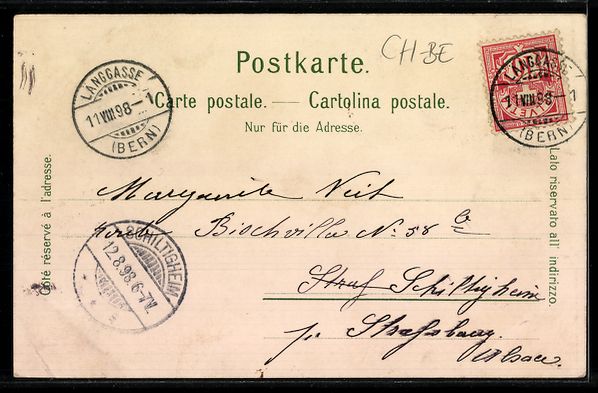 CH-BE
Postkarte.
Carte postale. — Cartolina postale.
Nur für die Adresse.
Côté réservé à l'adresse.
Lato riservato all' indirizzo.
LÄNGGASSE
11.VIII.98-1
(BERN)
LÄNGGASSE
11.VIII.98-1
(BERN)
HELVETIA
SCHILTIGHEIM
12.8.98.6-7V.
Marguerite Veit
N: 58 a
Schiltigheim
pr Strassbourg
Alsace.